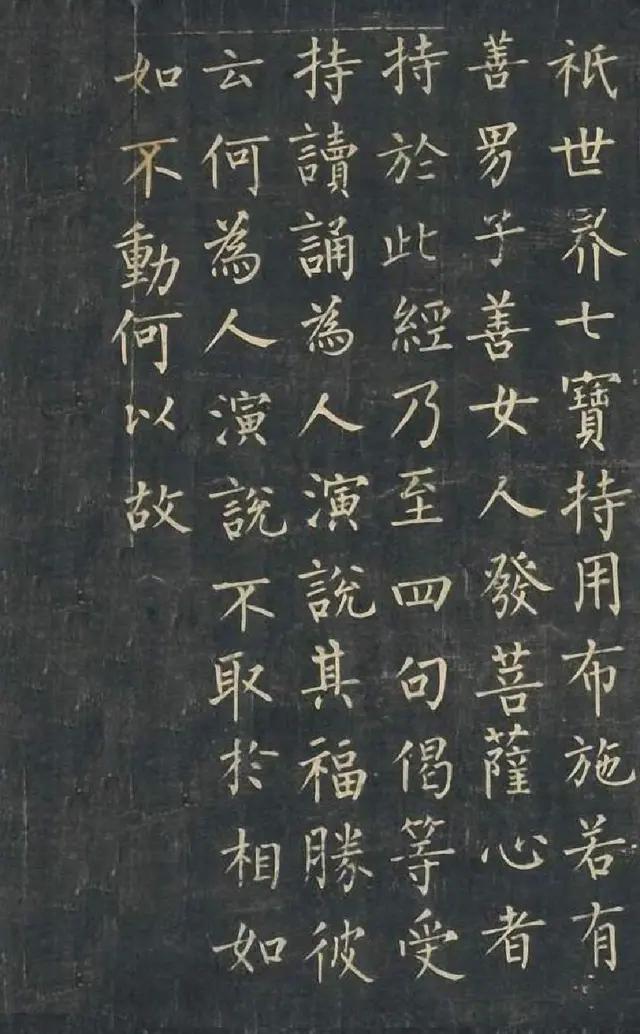 祇世界七寶持用布施若有
善男子善女人發菩薩心者
持於此經乃至四句偈等受
持讀誦為人演說其福勝彼
云何為人演說不取於相如
如不動何以故